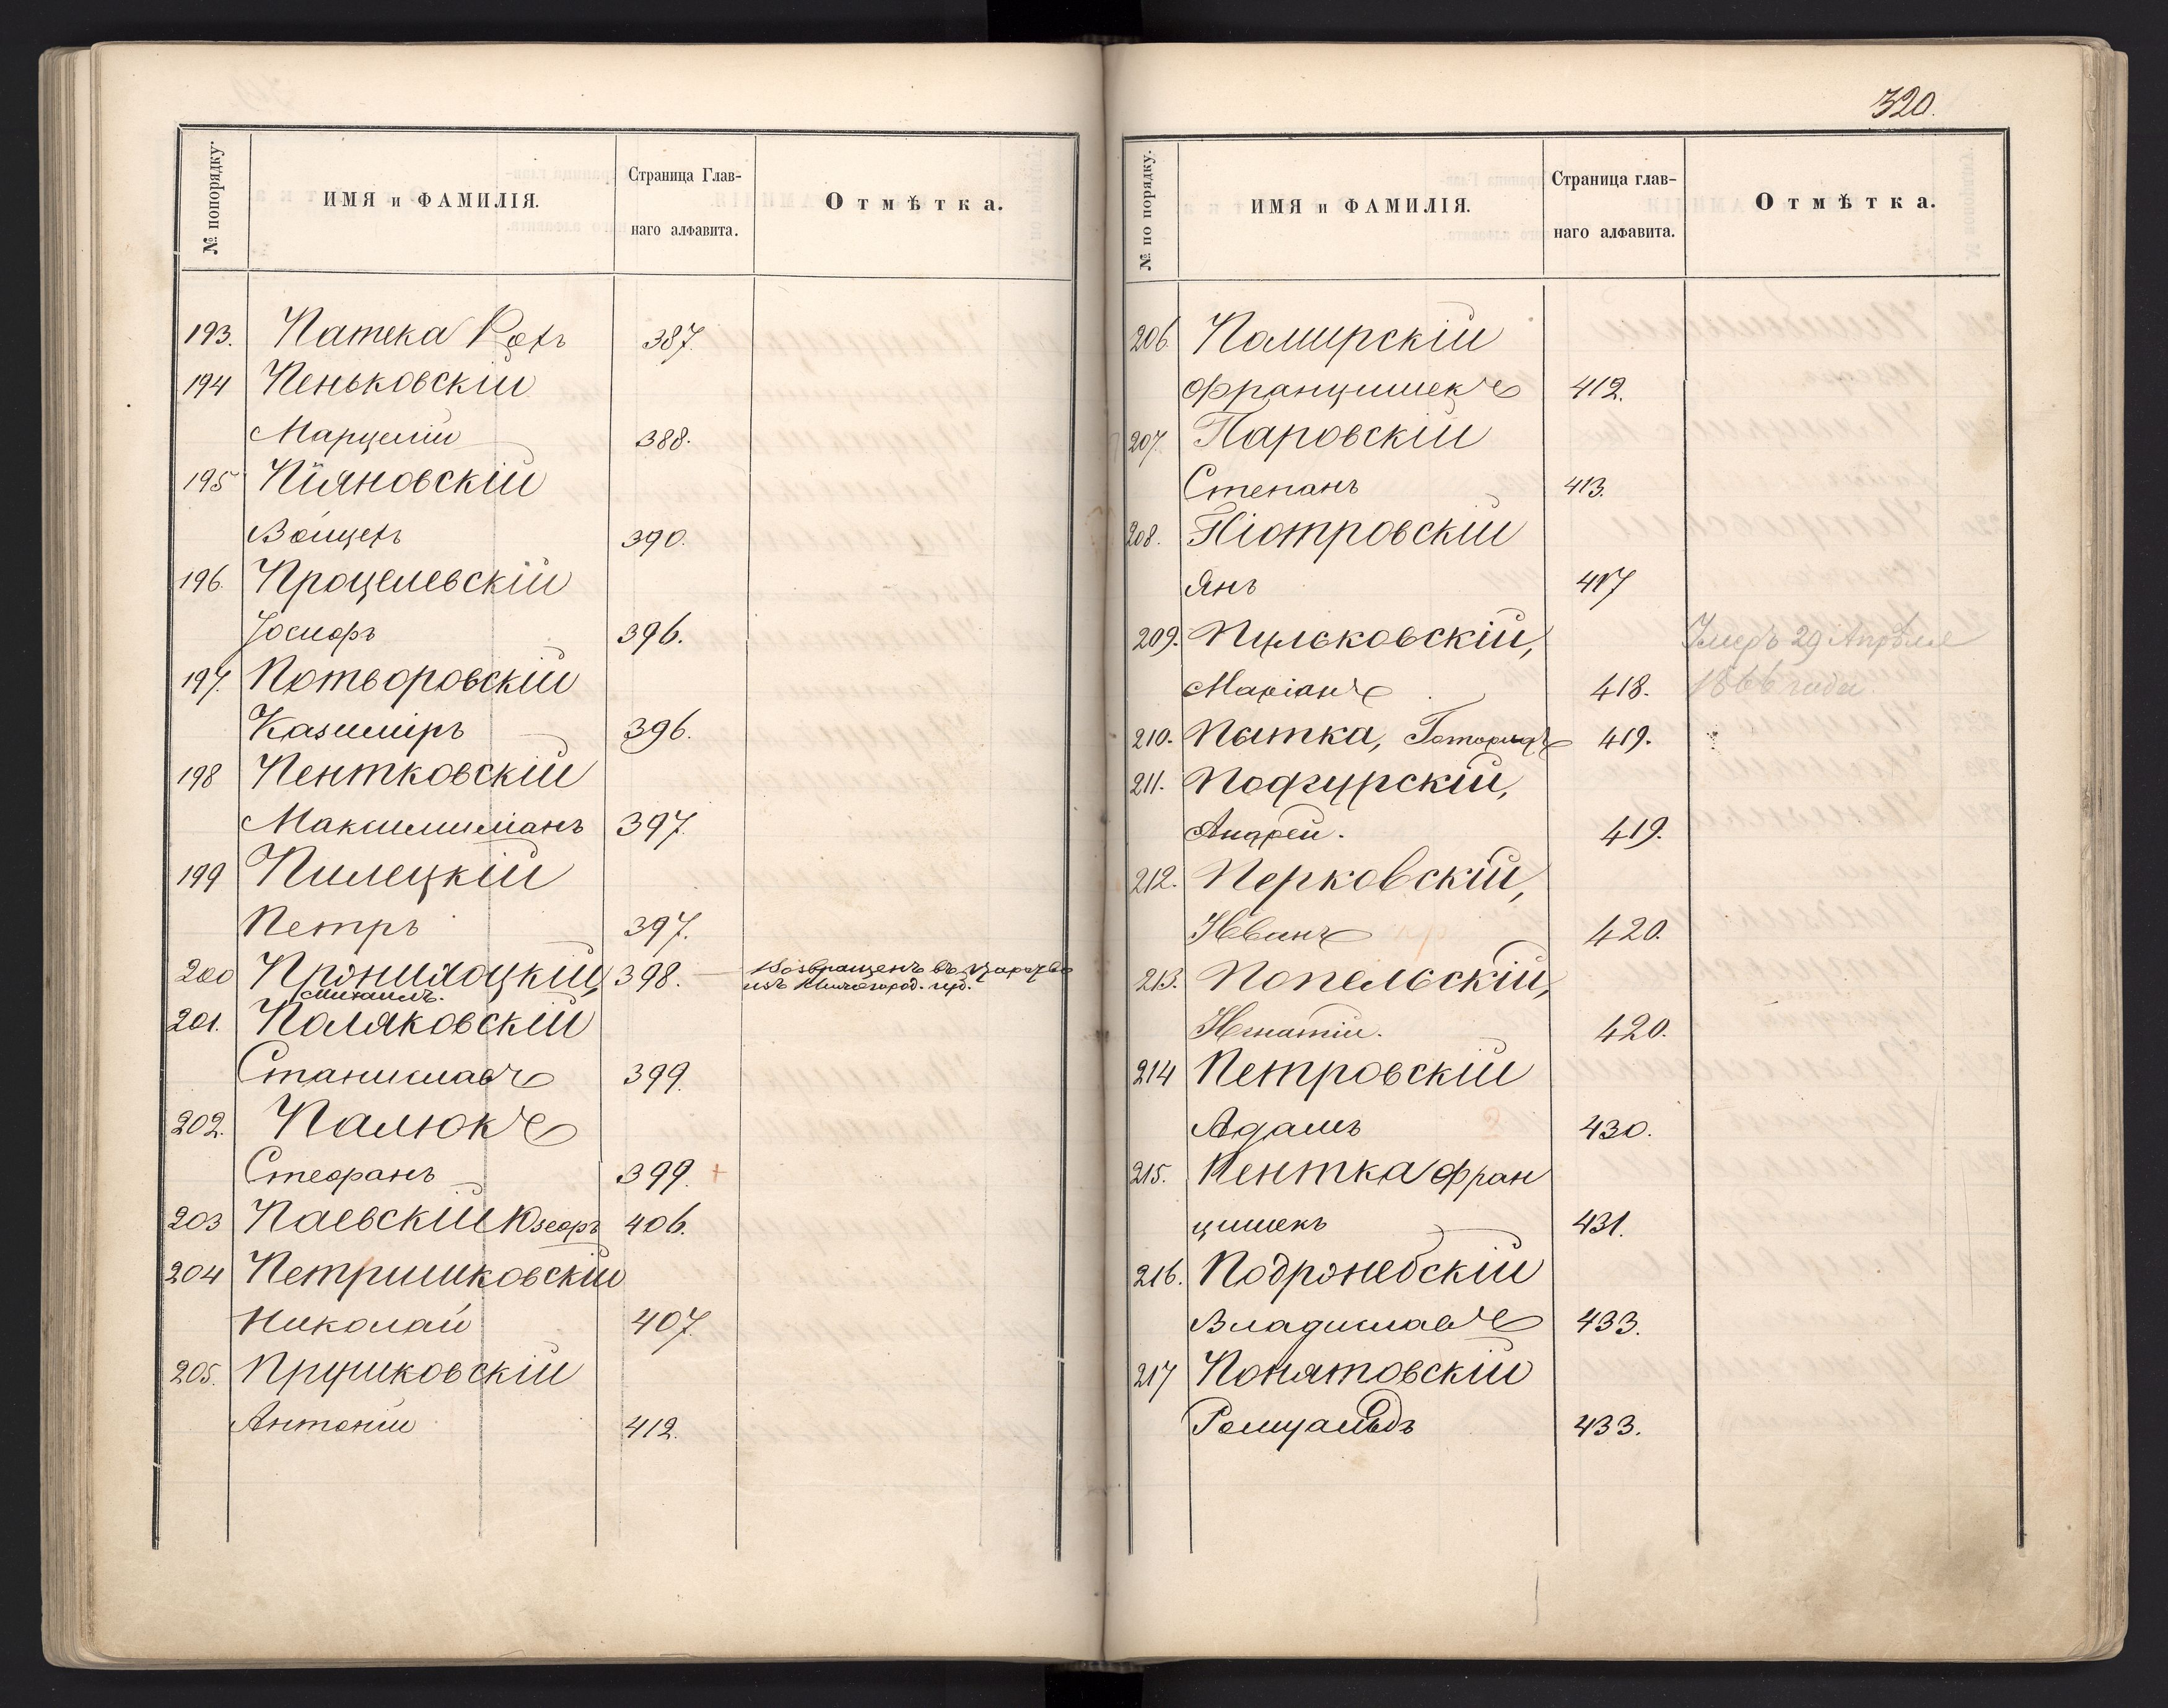 № попорядку.
ИМЯ и ФАМИЛІЯ.
Страница Глав-
наго алфавита.
Отмѣтка.
193. Патека Рохъ 387.
194 Пеньковскій
Марцелій 388.
195 Піяновскій
Войцехъ 390.
196. Процелевскій
Іосифъ 396.
197. Потворовскій
Казиміръ 396.
198 Пентковскій
Максимиліанъ 397.
199 Пилецкій
Петръ 397.
200 398. Возвращенъ въ Царство
изъ Нижегород. губ.
Михаилъ.
201. Поляковскій
Станиславъ 399.
202. Палюкъ
Стефанъ 399. +
203 Паевскій Юзефъ 406.
204 Петришковскій
Николай 407.
205. Прушковскій
Антоній 412.
320.
№ по порядку.
ИМЯ и ФАМИЛІЯ.
Страница глав-
наго алфавита.
Отмѣтка.
206. Помирскій
Францишекъ 412.
207. Паровскій
Степанъ 413.
208. Піотровскій
Янъ 417
209. Пульковскій, Умеръ 29 Апрѣля
Маріанъ 418. 1866 года
210. Пытка, 419.
211. Подгурскій,
Андрей. 419.
212. Перковскій,
Иванъ 420.
213. Попельскій,
Игнатій. 420.
214 Петровскій
Адамъ 430.
215. Пентка Фран
цишекъ 431.
216. Подронебскій
Владиславъ 433.
217 Понятовскій
Ромуальдъ 433.